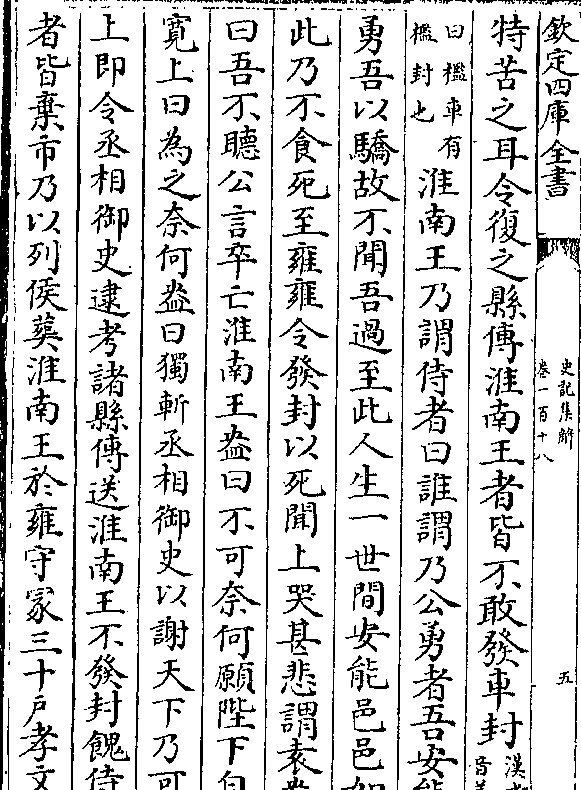 欽定四庫全書
史記集解
卷一百十八
五
特苦之耳今復之縣傳淮南王者皆不敢發車封漢
音
曰檻車有
檻封也
淮南王乃謂侍者曰誰謂乃公勇者吾安能
勇吾以驕故不聞吾過至此人生一世間安能邑邑如
此乃不食死至雍雍令發封以死聞上哭甚悲謂袁盎
曰吾不聽公言卒亡淮南王盎曰不可奈何願陛下自
寛上曰為之奈何盎曰獨斬丞相御史以謝天下乃可
上即令丞相御史逮考諸縣傳送淮南王不發封餽侍
者皆棄市乃以列侯葬淮南王於雍守冢三十戶孝文